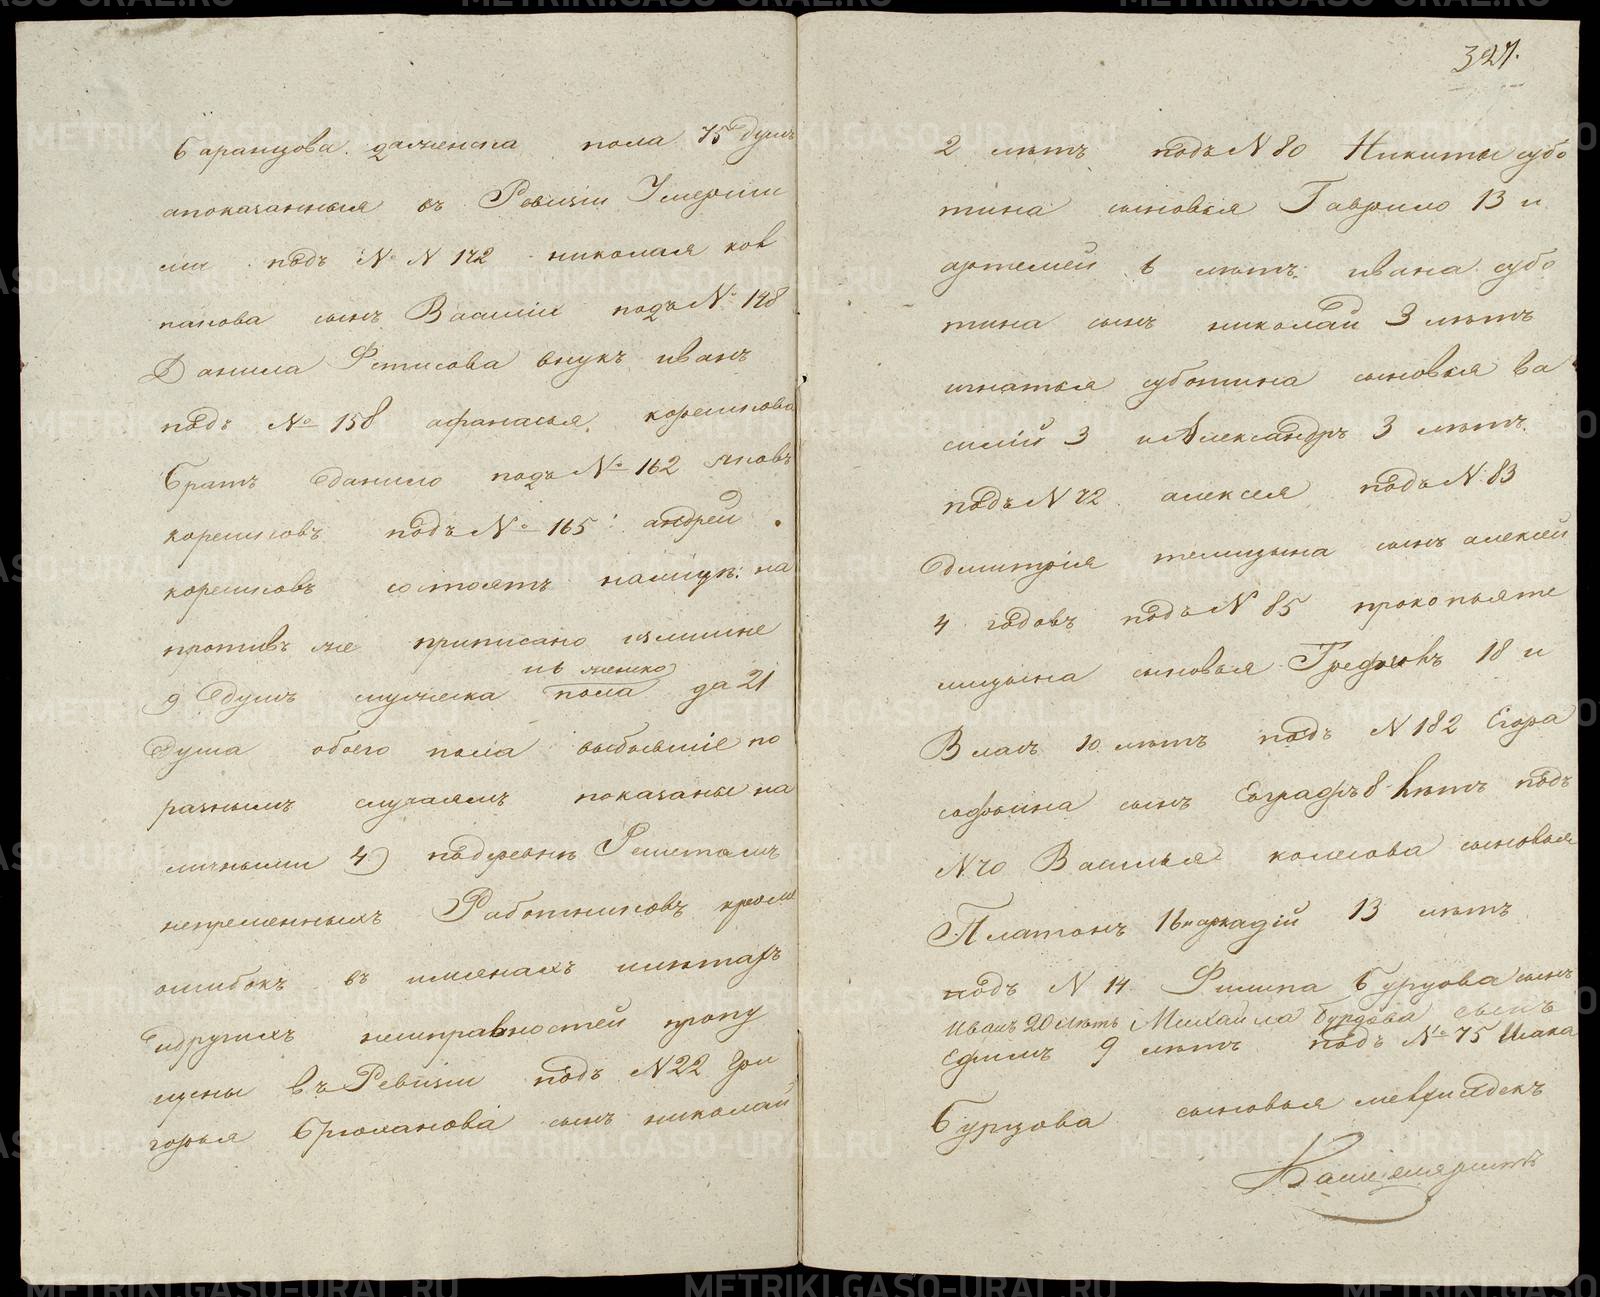 баранцова. даженска пола 75 душъ
апоказанныя въ Ревизiи Умерши
ми подъ № N 142 николая ков
панова сынъ Василiи подъ № 148
Данила Фетисова внукъ иванъ
подъ № 158 афанасья корешкова
братъ данило подъ № 162 яковъ
корешковъ подъ № 165: андрей
корешковъ состоятъ налицѣ: на
противъ же приписано излишне
9 душъ мужеска пола да 21
иѣ женско
душа обоего пола выбывшiе по
разнымъ случаямъ показаны на
личными 4) подеревнѣ Решетамъ
непременныхъ Работниковъ кроме
ошибокъ въ именахъ илѣтахъ
идругихъ неисправностей пропу
щены въ Ревизiи подъ N 22 Гри
горья Брюханова сынъ николай
327.
2 лѣтъ подъ N 80 Никиты субо
тина сыновья Гаврило 13 и
артемей 6 лѣтъ: ивана субо
тина сынъ николай 3 лѣтъ
игнатья суботина сыновья ва
силiй 3 и Александръ 3 лѣтъ.
подъ N 72 алексея подъ N 83
Дмитрiя темицына сынъ алексей
4 годовъ подъ N 85 прокопья те
мицына сыновья 18 и
Власъ 10 лѣтъ подъ N 182 Егора
софьина сынъ Евграфъ 8 лѣтъ подъ
N 70 Василья колегова сыновья
Платонъ 16 и аркадiй 13 лѣтъ
подъ N 14 Филипа бурцова сынъ
Иванъ 20 лѣтъ Михаила Бурцова сынъ
Ефимъ 9 лѣтъ подъ № 75 Исака
Бурцова сыновья